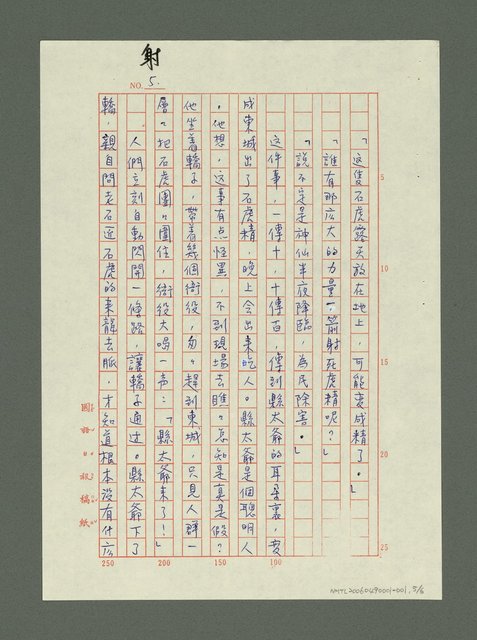 射
NO. 5.
「這隻石虎露天放在地上，可能變成精了。」
「誰有那広大的力量一箭射死虎精呢？」
「說不定是神仙半夜降臨，為民除害。」
這件事，一傳十，十傳百，傳到縣太爺的耳朶裏，變
成東城出了石虎精，晚上会出来吃人。縣太爺是個聰明人
。他想，这事有点怪異，不到現場去瞧々怎知是真是假？
他坐着轎子，帶着幾個衙役，匆々趕到東城，只見人群一
層々把石虎團々圍住，衙役大喝一声：「縣太爺来了！」
人們立刻自動閃開一條路，讓轎子通过。縣太爺下了
轎，親自問老石匠石虎的来龍去脈，才知道根本没有什広
5
10
15
20
25
100
150
200
250
國語日報稿紙
NMTL20060490001-001, 5/6